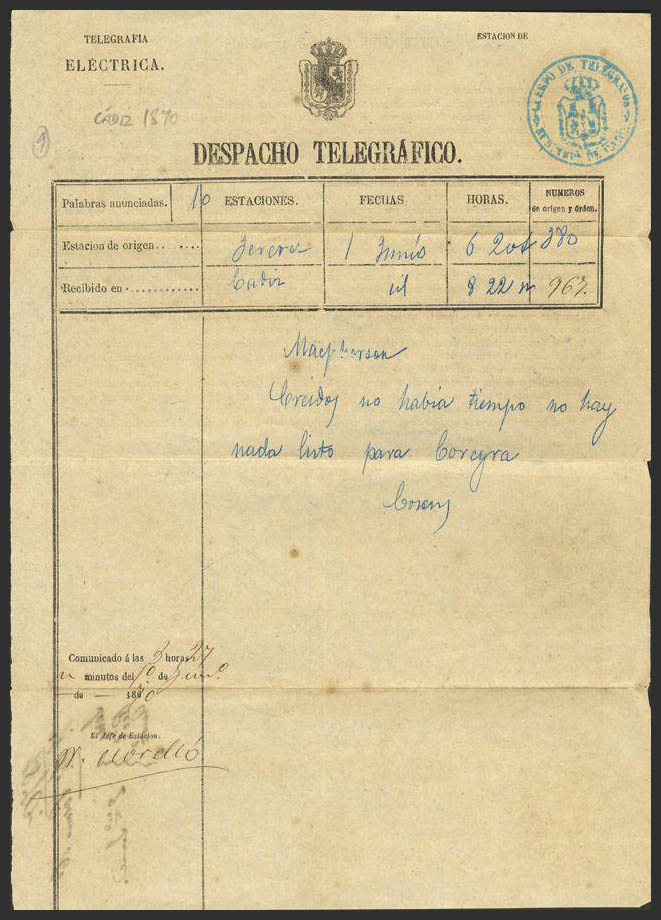 TELEGRAFIA
ELÉCTRICA.
ESTACION DE
CUERPO DE TELEGRAFOS
CÁDIZ 1870
9
DESPACHO TELEGRÁFICO.
Palabras anunciadas. 10 ESTACIONES. FECHAS HORAS. NUMEROS de origen y órden.
Estacion de origen. Jerez 1 Junio 6 20 t 380
Recibido en Cadiz id 8 22 n 967.
Macpherson
Creidos no habia tiempo no hay
nada listo para Corcyra
Cosens
Comunicado á las 8 horas 27
minutos del 1º de Junio
de 1870
El Jefe de Estacion.